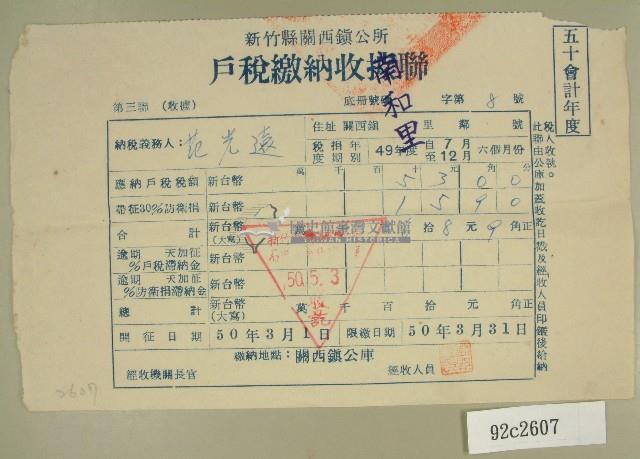 新竹縣關西鎮公所
戶稅繳納收據聯
南和里
五十會計年度
第三聯（收據）
底冊號 字第 8 號
納稅義務人：范光遠
住址 關西鎮 里 鄰 號
稅捐年度期別 49年度 自7月至12月 六個月份
應納戶稅稅額 新台幣 萬 千 百 十 元 角 分
5 3 0 0
帶征30%防衛捐 新台幣
1 5 9 0
合計 新台幣(大寫) 拾 8 元 9 角正
逾期 天加征 %戶稅滯納金 新台幣
逾期 天加征 %防衛捐滯納金 新台幣
總計 新台幣(大寫) 萬 千 百 拾 元 角正
50.5.3
收訖
國史館臺灣文獻館
TAIWAN HISTORICA
開征日期 50年3月1日 限繳日期 50年3月31日
繳納地點：關西鎮公庫
經收機關長官 經收人員
此聯由公庫加蓋收訖日戳及經收人員印鑑後給納稅人收執。
2607
92c2607